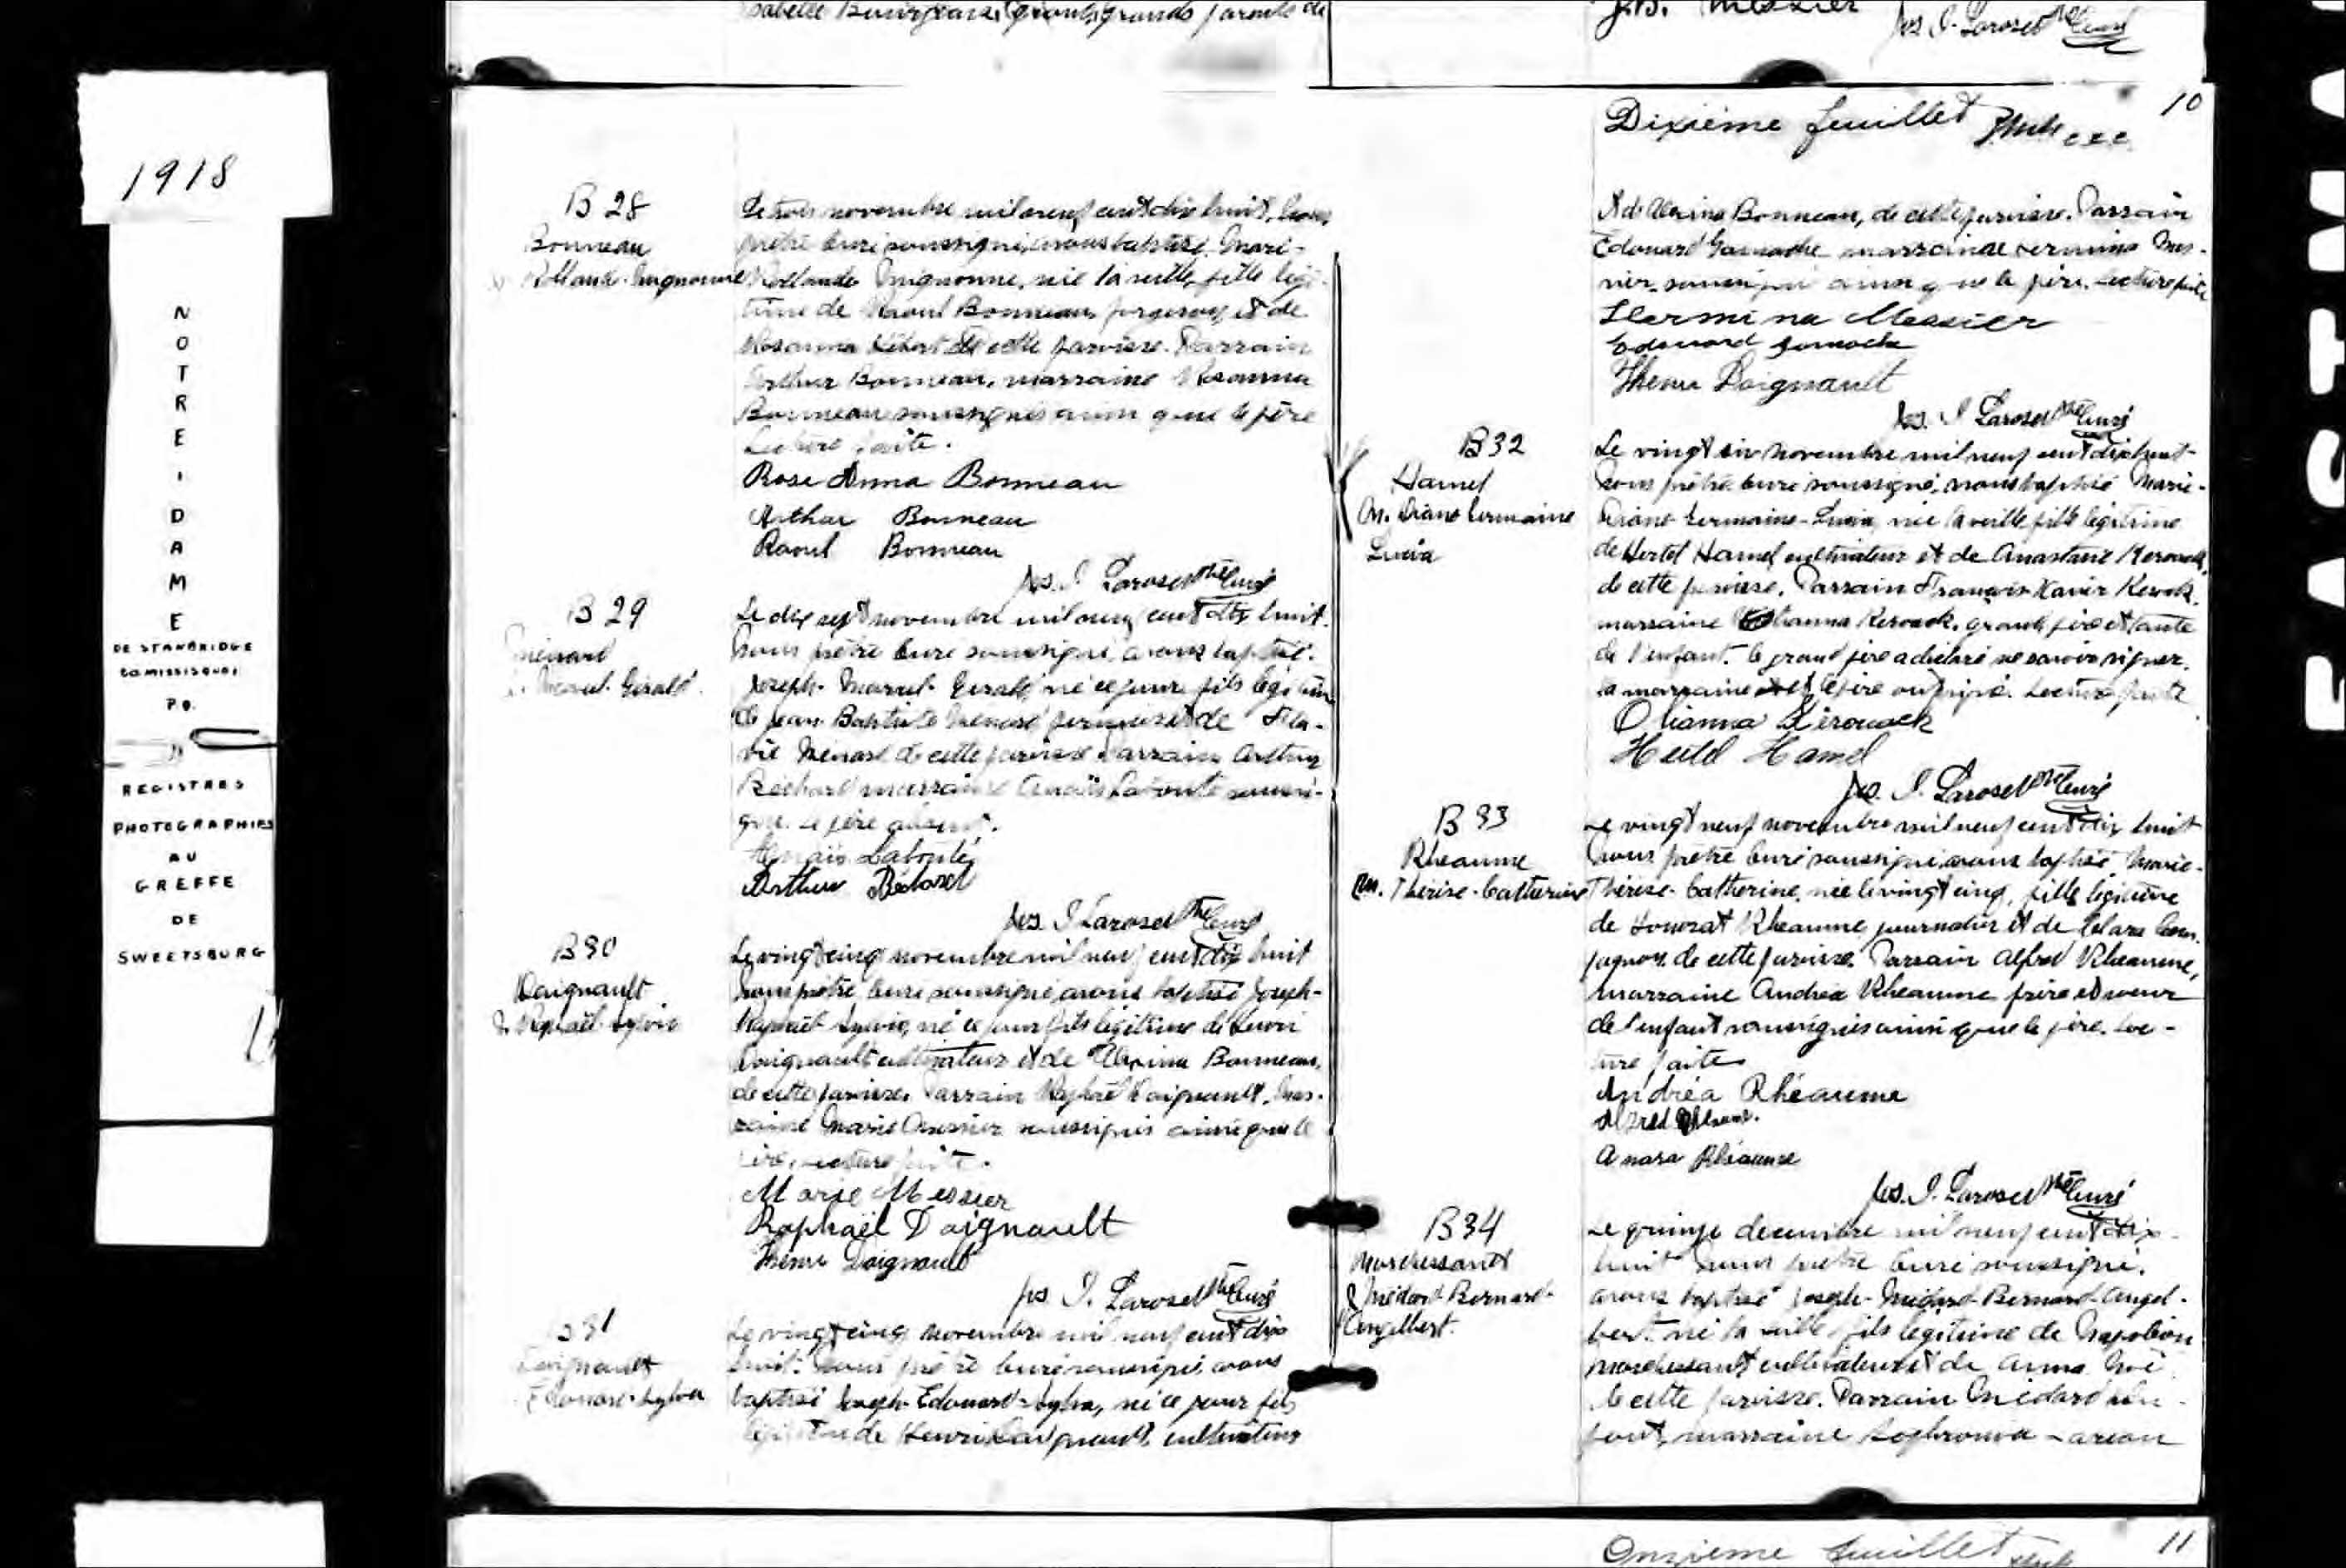 1918
NOTRE-DAME
DE STANBRIDGE
CO MISSISQUOI
P.Q.
REGISTRES
PHOTOGRAPHIES
AU
GREFFE
DE
SWEETSBURG
Isabelle Bourgeois, grands parents de
B 28
Bonneau
Rollande-Mignonne
Le trois novembre mil neuf cent dix huit, Nous,
prêtre curé soussigné, avons baptisé Marie-
Rollande Mignonne, née la veille, fille légi-
time de Raoul Bonneau et de
Rosanna Hébert de cette paroisse. Parrain
Arthur Bonneau, marraine Rosanna
Bonneau soussignés ainsi que le père
Lecture faite.
Rose Anna Bonneau
Arthur Bonneau
Raoul Bonneau
Jos. I. Larose Ptre Curé
B 29
Ménard
Marcel-Gérald
Le dix sept novembre mil neuf cent dix huit
Nous prêtre curé soussigné, avons baptisé
Joseph-Marcel-Gérald né ce jour fils légitime
de Jean-Baptiste Ménard et de Fla-
vie Ménard de cette paroisse Parrain Arthur
marraine soussi-
gnés. Le père absent.
Arthur
Jos. I Larose Ptre Curé
B 30
Daignault
J. Raphaël-Sylvio
Le vingt cinq novembre mil neuf cent dix huit
Nous prêtre curé soussigné, avons baptisé Joseph-
Raphaël-Sylvio, né ce jour fils légitime de Henri
Daignault cultivateur et de Albina Bonneau,
de cette paroisse. Parrain Raphaël Daignault, mar-
raine Marie Messier soussignés ainsi que le
père. Lecture faite.
Marie Messier
Raphaël Daignault
Henri Daignault
Jos. I. Larose Ptre Curé
B 31
Daignault
Edouard-Sylva
Le vingt cinq novembre mil neuf cent dix
huit. Nous prêtre curé soussigné, avons
baptisé Joseph-Edouard-Sylva, né ce jour fils
légitime de Henri Daignault, cultivateur
Messier
Jos. I. Larose Ptre Curé
10
Dixième feuillet
et de Albina Bonneau, de cette paroisse. Parrain
Edouard Gamache marraine Hermina Mes-
sier, soussignés ainsi que le père. Lecture faite
Hermina Messier
Edouard Gamache
Henri Daignault
Jos. I Larose Ptre Curé
B 32
Hamel
M. Diane Germaine
Lucia
Le vingt six novembre mil neuf cent dix huit
Nous prêtre curé soussigné, avons baptisé Marie-
Diane Germaine-Lucia, née la veille, fille légitime
de Hertel Hamel cultivateur et de Anastasie Kerouack,
de cette paroisse. Parrain François-Xavier Kerouack,
marraine Olianna Kerouack, grand père et tante
de l'enfant. Le grand père a déclaré ne savoir signer.
la marraine et le père ont signé. Lecture faite
Olianna Kérouack
Hertel Hamel
Jos. I. Larose Ptre Curé
B 33
Rheaume
M. Thérèse-Catherine
Le vingt neuf novembre mil neuf cent dix huit
Nous prêtre curé soussigné, avons baptisé Marie-
Thérèse-Catherine, née le vingt cinq, fille légitime
de Honorat Rheaume, journalier et de Clara Com-
pagnon, de cette paroisse. Parrain Alfred Rheaume,
marraine Andréa Rheaume frère et soeur
de l'enfant soussignés ainsi que le père. Lec-
ture faite
Andréa Rhéaume
Alfred
Rhéaume
Jos. I. Larose Ptre Curé
B 34
Marchessault
J Médard Bernard-
Angelbert.
Le quinze décembre mil neuf cent dix
huit Nous prêtre curé soussigné,
avons baptisé Joseph-Médard-Bernard-Angel-
bert né la veille, fils légitime de Napoléon
Marchessault cultivateur et de Anna
de cette paroisse. Parrain Médard
marraine
Onzième feuillet
11
EASTMA